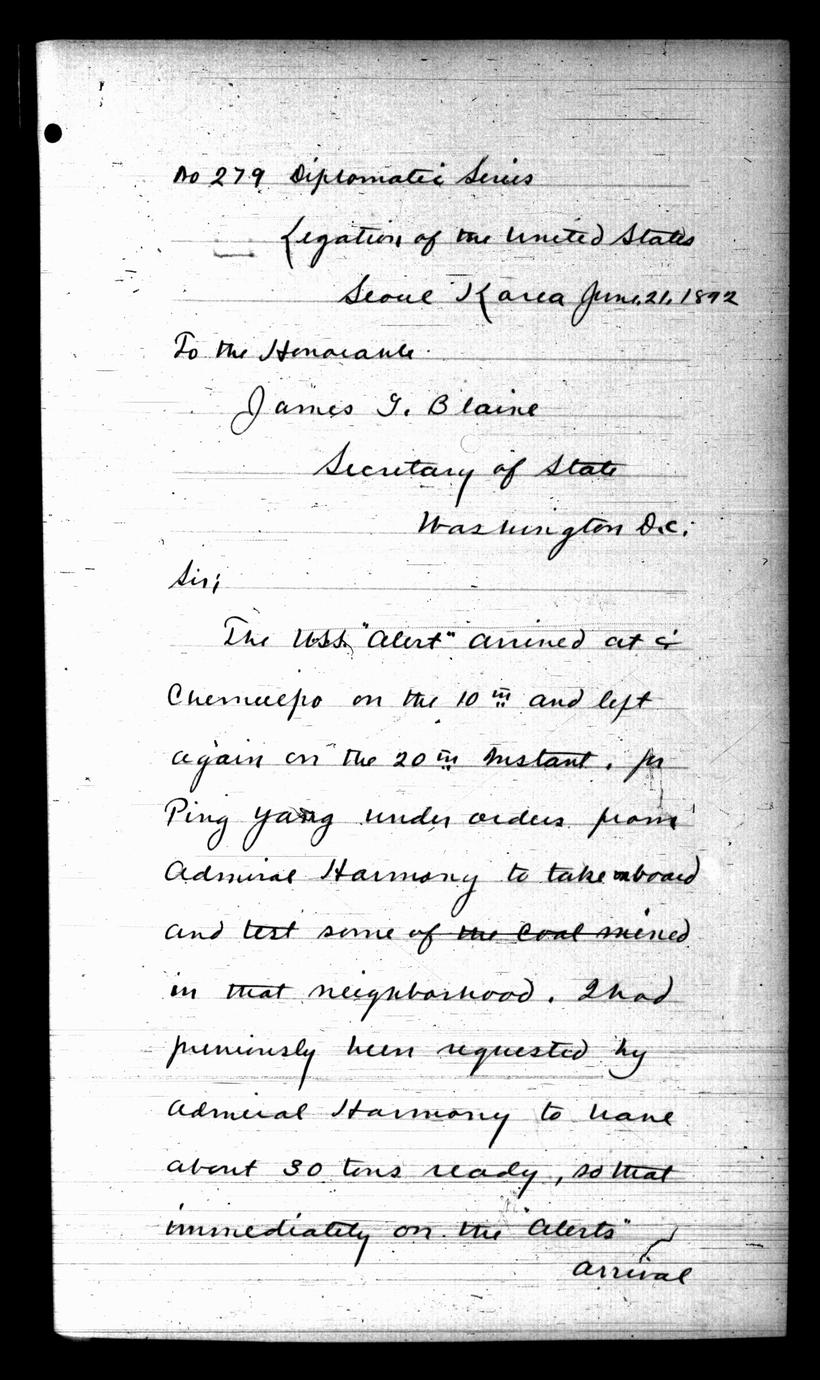 No 279 Diplomatic Series
Legation of the United States
Seoul Korea June, 21, 1892
To the Honorable
James G. Blaine
Secretary of State
Washington D.C.
Sir;
The U.S.S. "Alert" arrived at
Chemulpo on the 10th and left
again on the 20th Instant, for
Ping Yang under orders from
Admiral Harmony to take onboard
and test some of the Coal mined
in that neighborhood. I had
previously been requested by
Admiral Harmony to have
about 30 tons ready, so that
immediately on the "Alerts"
arrival